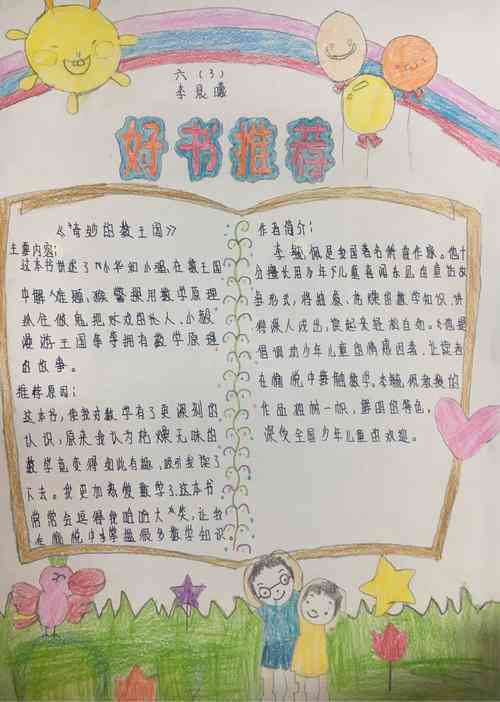 六（3）
李晨曦
好书推荐
《奇妙的数王国》
主要内容：
这本书讲述了小华和小强，在数王国
中解难题，猴警探用数学原理
抓住做鬼把戏的
漫游王国等等拥有数学原理
的故事。
推荐原因：
这本书，使我对数学有了更深刻的
认识，原来我认为枯燥无味的
数学竟变得如此有趣，吸引我读了
下去。我更加热爱数学了，这本书
常常会逗得我哈哈大笑，让我
在愉悦中掌握很多数学知识
作者简介：
李毓佩是我国著名科普作家。他十
分擅长用少年儿童喜闻乐见的童话故
事形式，将抽象、枯燥的数学知识，讲
得深入浅出，读起来轻松自如。
倡调动少年儿童的情感因素，让读者
在愉悦中接触数学，李毓佩教授的
作品独树一帜，鲜明的特色，
深受全国少年儿童的欢迎。